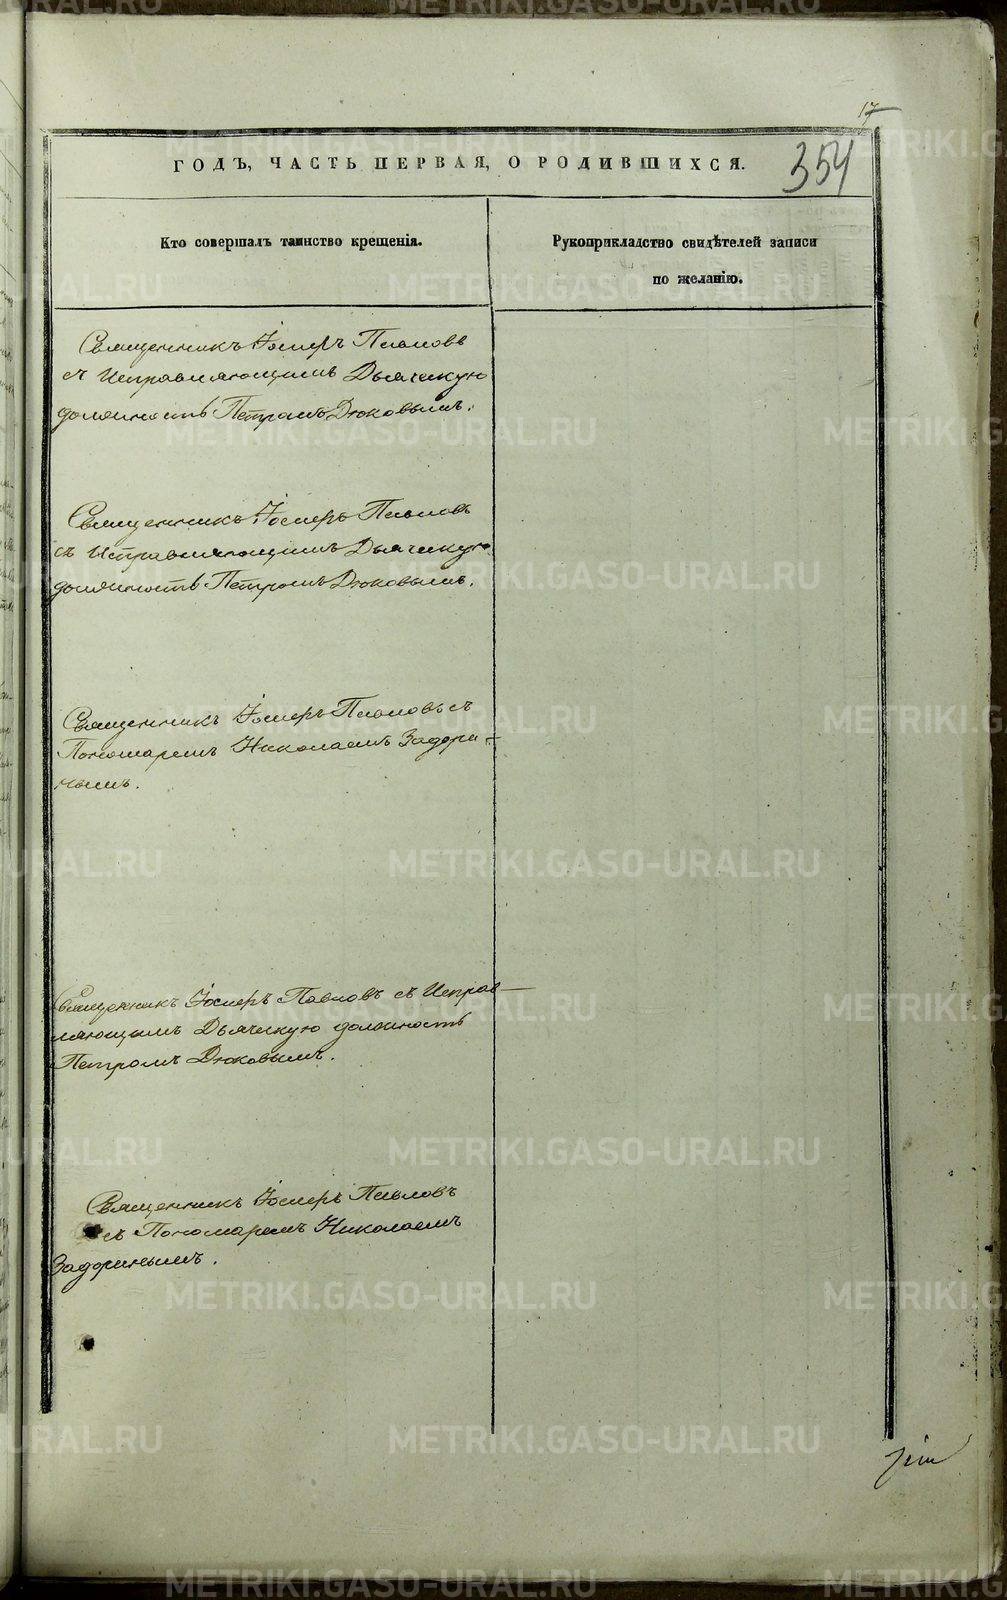 17
ГОДЪ, ЧАСТЬ ПЕРВАЯ, О РОДИВШИХСЯ.
354
Кто совершалъ таинство крещенія.
Рукоприкладство свидѣтелей записи
по желанію.
Священникъ Іосифъ Павловъ
съ Исправляющимъ Дьяческую
должность Петромъ Дюковымъ.
Священникъ Іосифъ Павловъ
съ Исправляющимъ Дьяческую
должность Петромъ Дюковымъ.
Священникъ Іосифъ Павловъ съ
Пономаремъ Николаемъ Задори-
нымъ.
Священникъ Іосифъ Павловъ съ Исправ-
ляющимъ Дьяческую должность
Петромъ Дюковымъ.
Священникъ Іосифъ Павловъ
съ Пономаремъ Николаемъ
Задоринымъ.
METRIKI.GASO-URAL.RU